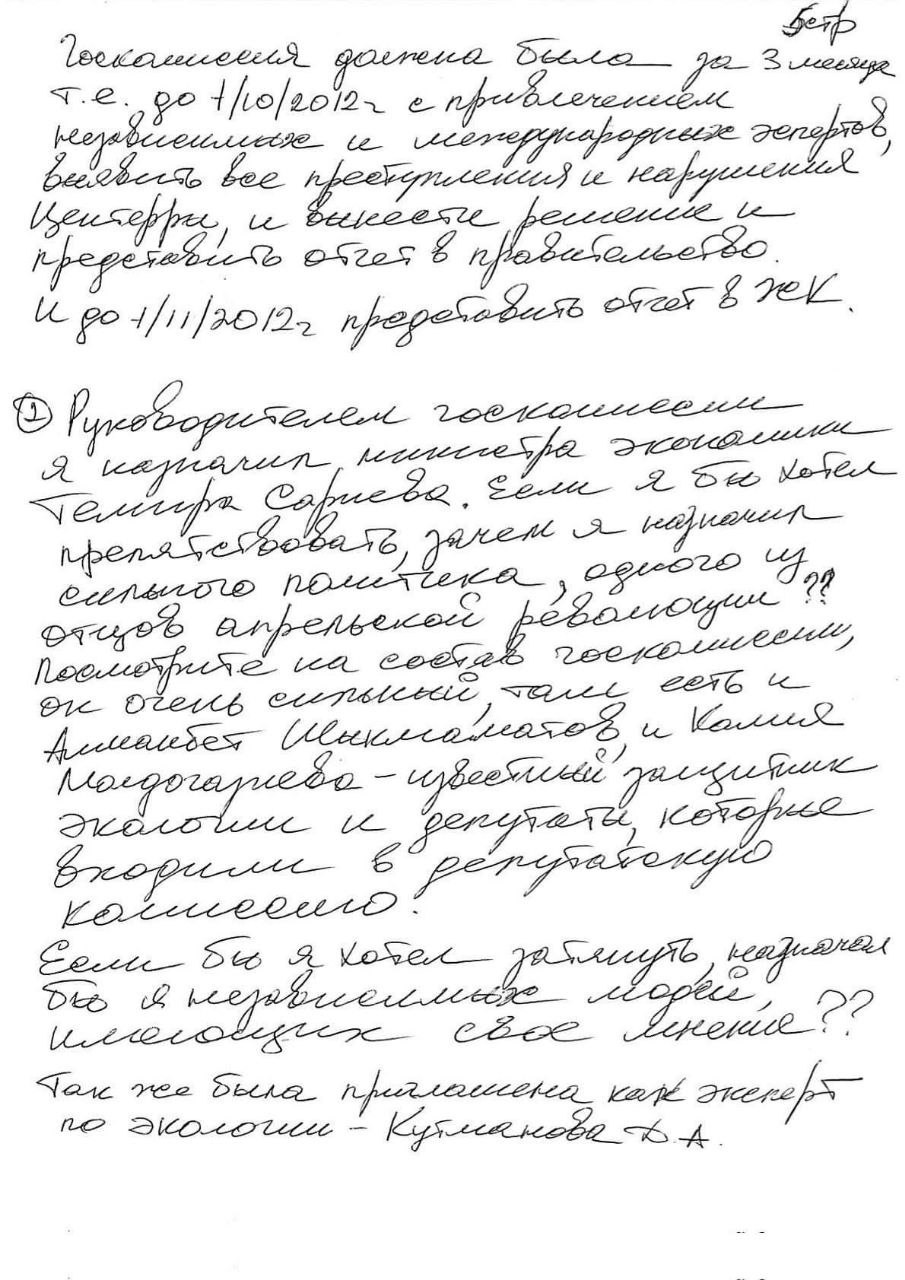 5стр
Госкомиссия должна была за 3 месяца
т.е. до 1/10/2012г с привлечением
независимых и международных экспертов,
выявить все преступления и нарушения
Центерры, и вынести решение и
представить отчет в правительство.
И до 1/11/2012г представить отчет в ЖК.
① Руководителем госкомиссии
я назначил министра экономики
Темира Сариева. Если я бы хотел
препятствовать, зачем я назначил
сильного политика, одного из
отцов апрельской революции??
Посмотрите на состав госкомиссии,
он очень сильный, там есть и
Алманбет Шыкмаматов, и Калия
Молдогазиева – известный защитник
экологии и депутаты, которые
входили в депутатскую
комиссию.
Если бы я хотел затянуть, назначал
бы я независимых людей,
имеющих свое мнение??
Так же была приглашена как эксперт
по экологии – Кутманова Д.А.